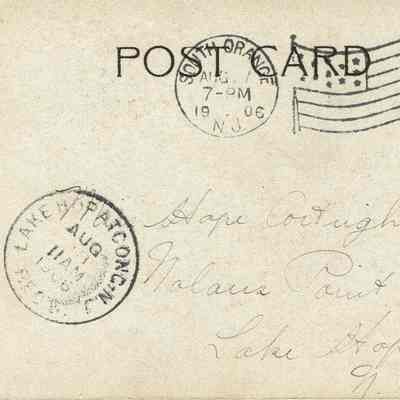 POST CARD
SOUTH ORANGE
AUG 7
7-PM
19 06
N.J.
LAKE HOPATCONG N.J.
AUG
11 AM
1906
REC'D.
Hope Cortrigh
Nolans Point
Lake Hop
N.